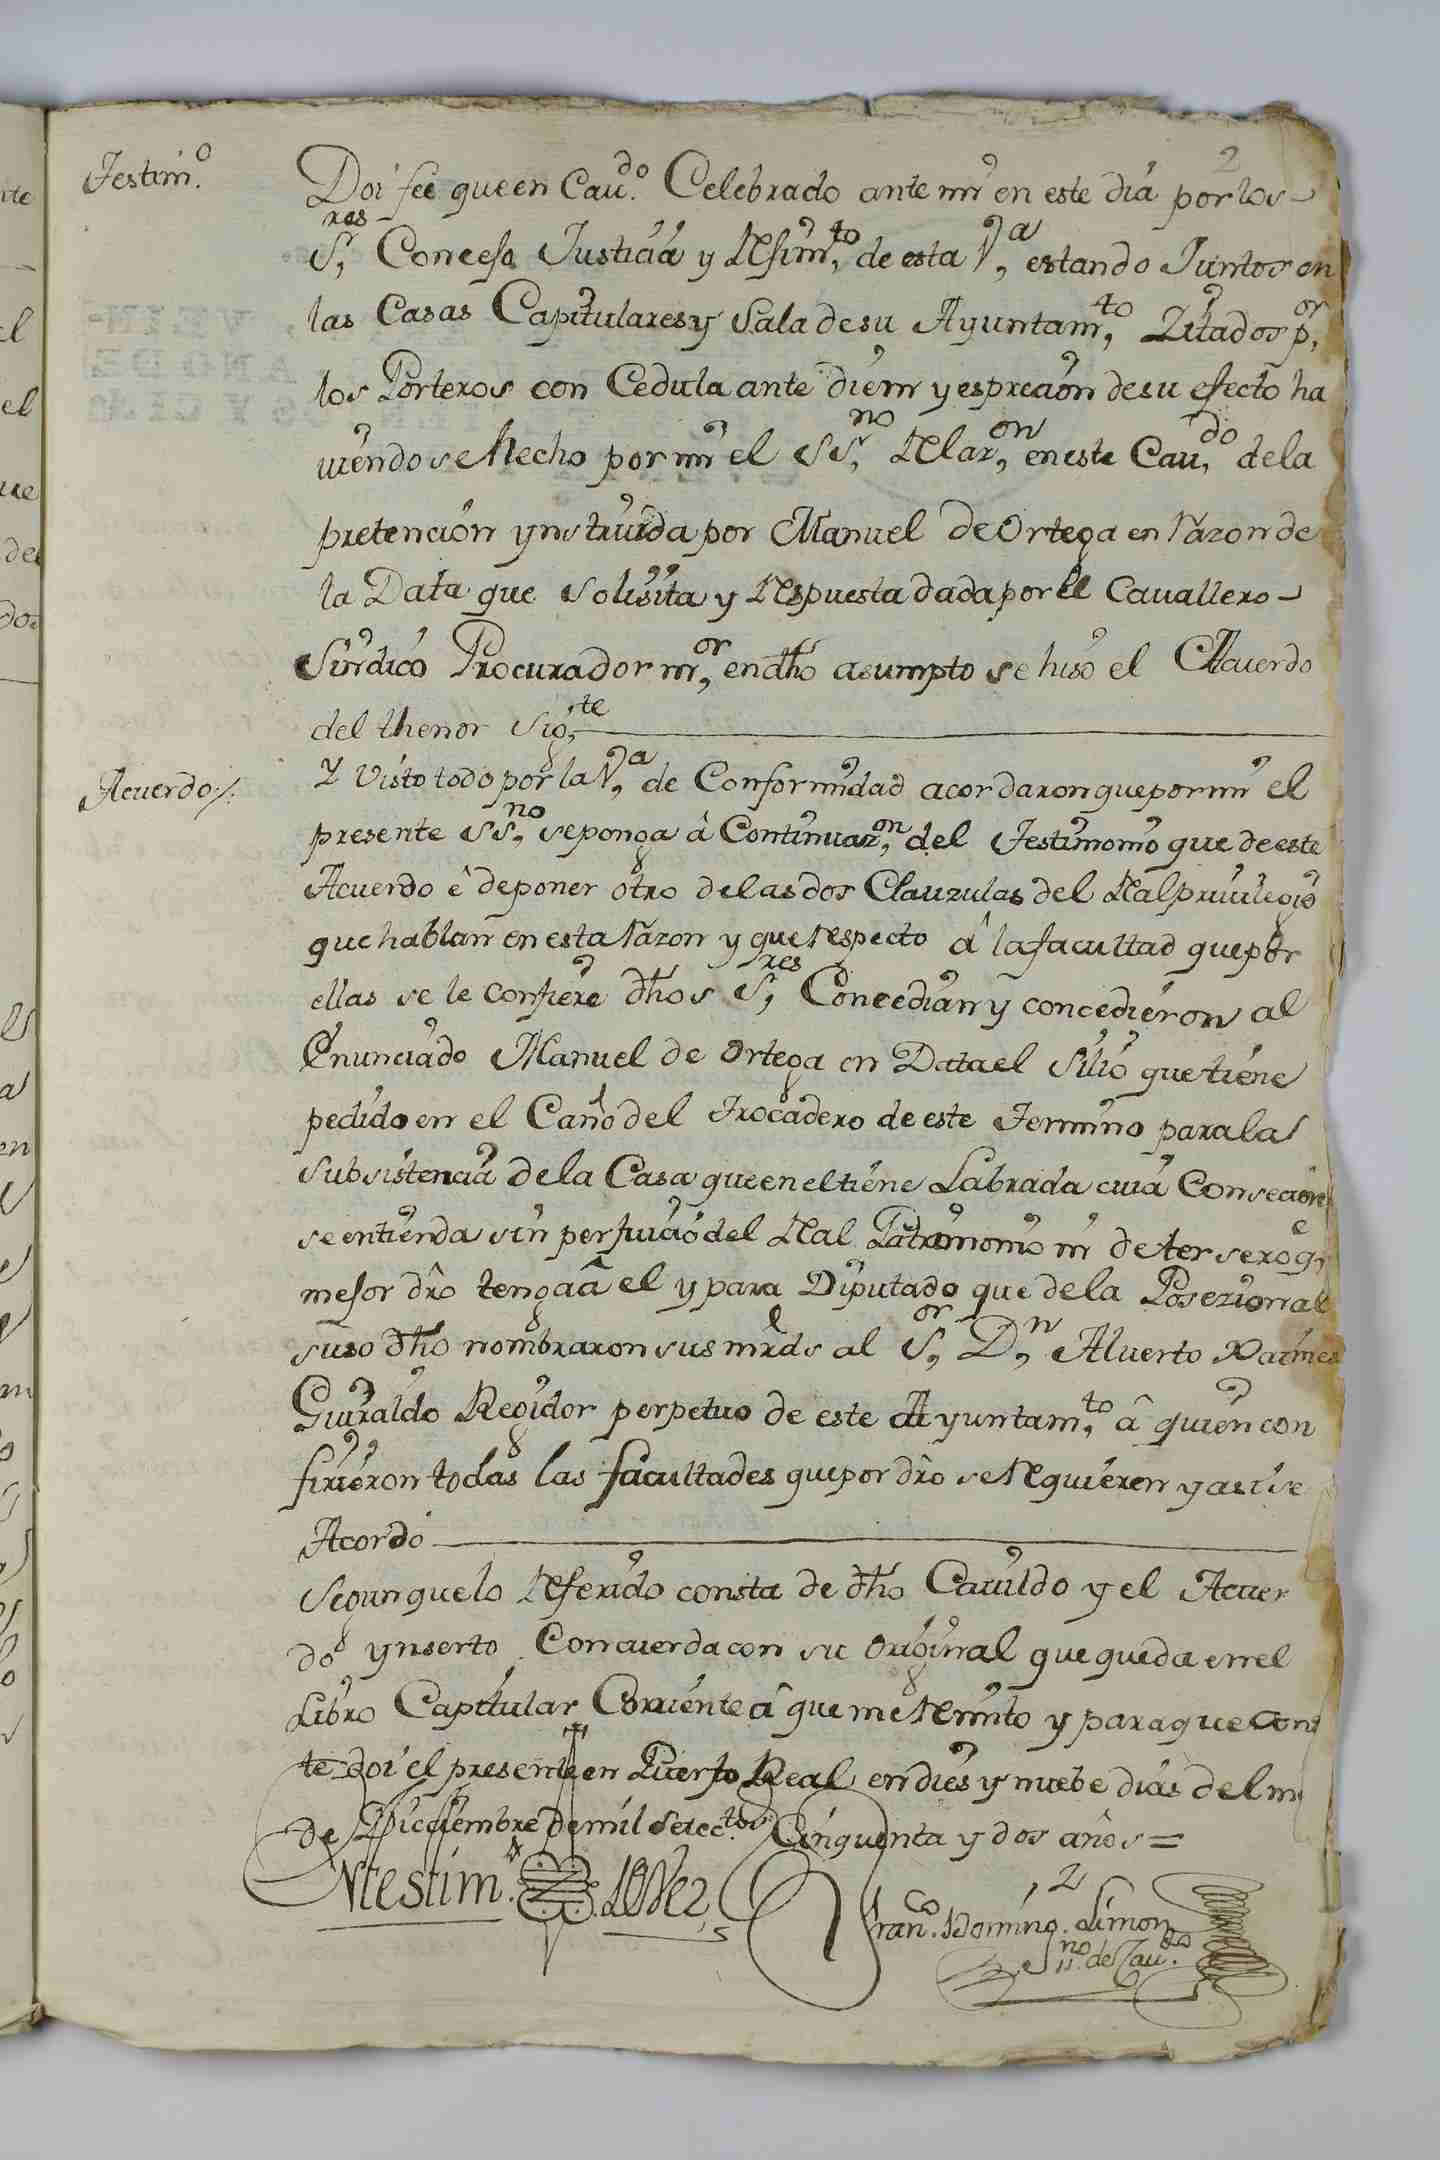 2
Testim.º
Doi fee que en Cau.do Celebrado ante mi en este dia por los
S.res Concejo Justicia y Rejim.to de esta V.a estando Juntos en
las Casas Capitulares y Sala de su Ayuntam.to Zitados p.or
los Porteros con Cedula ante diem y espreción de su efecto ha
viendose Hecho por mi el SS.no Relaz.on en este Cau.do de la
pretención ynstruida por Manuel de Ortega en Razon de
la Data que solisita y Respuesta dada por el Cavallero
Sindico Procurador m.or en dho asumpto se hiso el Acuerdo
del thenor Sig.te
Acuerdo/.
Y Visto todo por la V.a de Conformidad acordaron que por mi el
presente SS.no se ponga â Continuaz.on del Testimonio que de este
Acuerdo ê de poner otro de las dos Clauzulas del Real privilegio
que hablan en esta Razon y que Respecto â la facultad que por
ellas se le Confiere dhos S.res Concedian y concedieron al
Enunciado Manuel de Ortega en Data el Sitio que tiene
pedido en el Caño del Trocadero de este Termino para la
subsistencia de la Casa que en el tiene Labrada cuia Conseción
se entienda sin perjuicio del Real Patrimonio ni de tersero q.e
mejor dro tenga â el y para Diputado que de la Posezion al
suso dho nombraron sus mrds al S.or D.n Alverto
Guiraldo Regidor perpetuo de este Ayuntam.to â quien con
firieron todas las facultades que por dro se Requieren y asi se
Acordo
Segun que lo Referido consta de dho Cavildo y el Acuer
do ynserto Concuerda con su original que queda en el
Libro Capitular Corriente â que me Remito y para que Cons
te doi el presente en Puerto Real en dies y nuebe dias del m
de Diciiembre de mil Setec.tos Cinquenta y dos años =
Franco. Domingo. Limon
SS.no de Cau.do